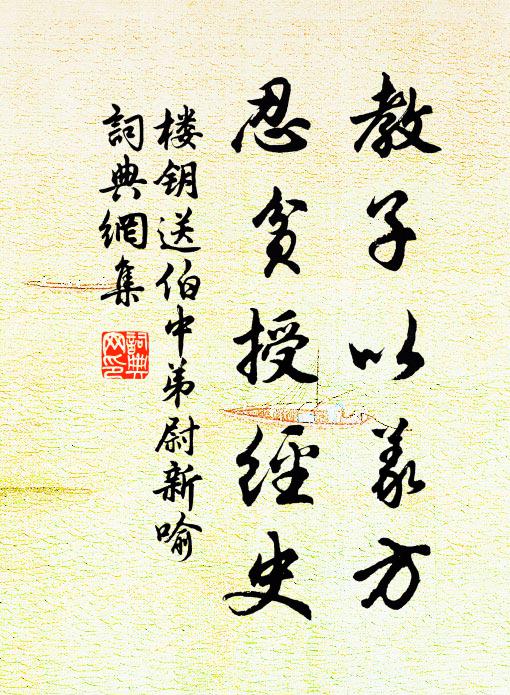 教子以義方
忍貧授經史
楼钥送伯中弟尉新喻
詞典網集
詞典
网印